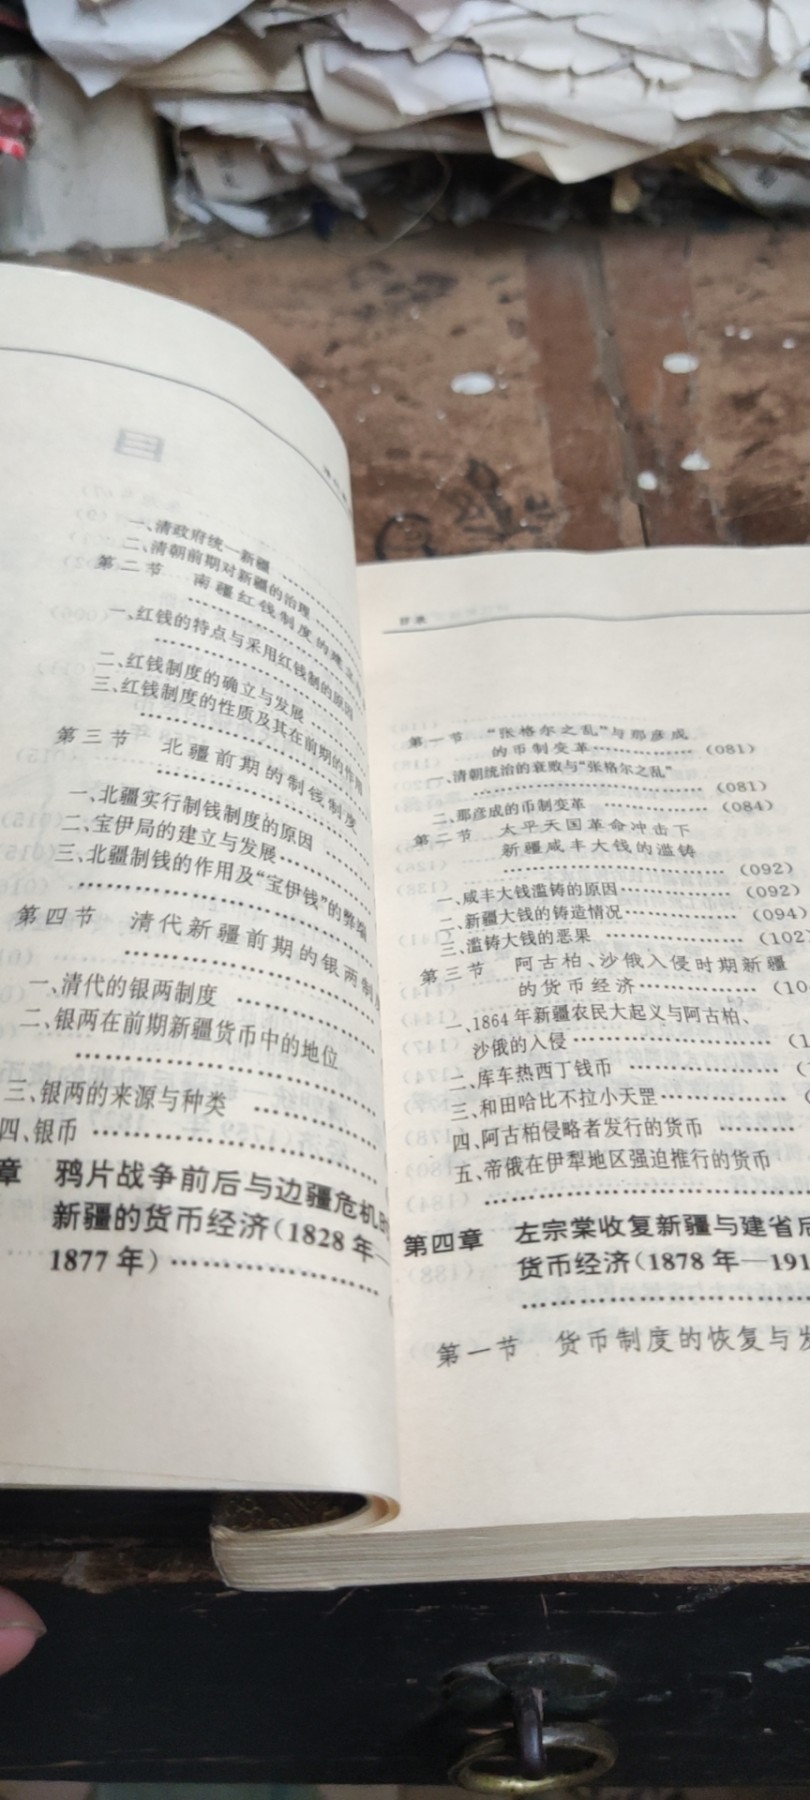 一、清政府统一新疆 ……
二、清朝前期对新疆的治理 ……
第二节 南疆红钱制度的建立
……
一、红钱的特点与采用红钱制的原因
……
二、红钱制度的确立与发展 ……
三、红钱制度的性质及其在前期的作用
……
第三节 北疆前期的制钱制度
……
一、北疆实行制钱制度的原因 ……
二、宝伊局的建立与发展……
三、北疆制钱的作用及“宝伊钱”的弊端
……
第四节 清代新疆前期的银两制度
……
一、清代的银两制度 ……
二、银两在前期新疆货币中的地位
……
三、银两的来源与种类 ……
四、银币 ……
章 鸦片战争前后与边疆危机时
新疆的货币经济(1828年—
1877年)……
目录
第一节 “张格尔之乱”与那彦成
的币制变革……(081)
一、清朝统治的衰败与“张格尔之乱”
……(081)
二、那彦成的币制变革 ……(084)
第二节 太平天国革命冲击下
新疆咸丰大钱的滥铸
……(092)
一、咸丰大钱滥铸的原因……(092)
二、新疆大钱的铸造情况……(094)
三、滥铸大钱的恶果 ……(102)
第三节 阿古柏、沙俄入侵时期新疆
的货币经济……(10
一、1864年新疆农民大起义与阿古柏、
沙俄的入侵……(1
二、库车热西丁钱币 ……(
三、和田哈比不拉小天罡……(
四、阿古柏侵略者发行的货币 ……
五、帝俄在伊犁地区强迫推行的货币
……
第四章 左宗棠收复新疆与建省后
货币经济(1878年—191
……
第一节 货币制度的恢复与发